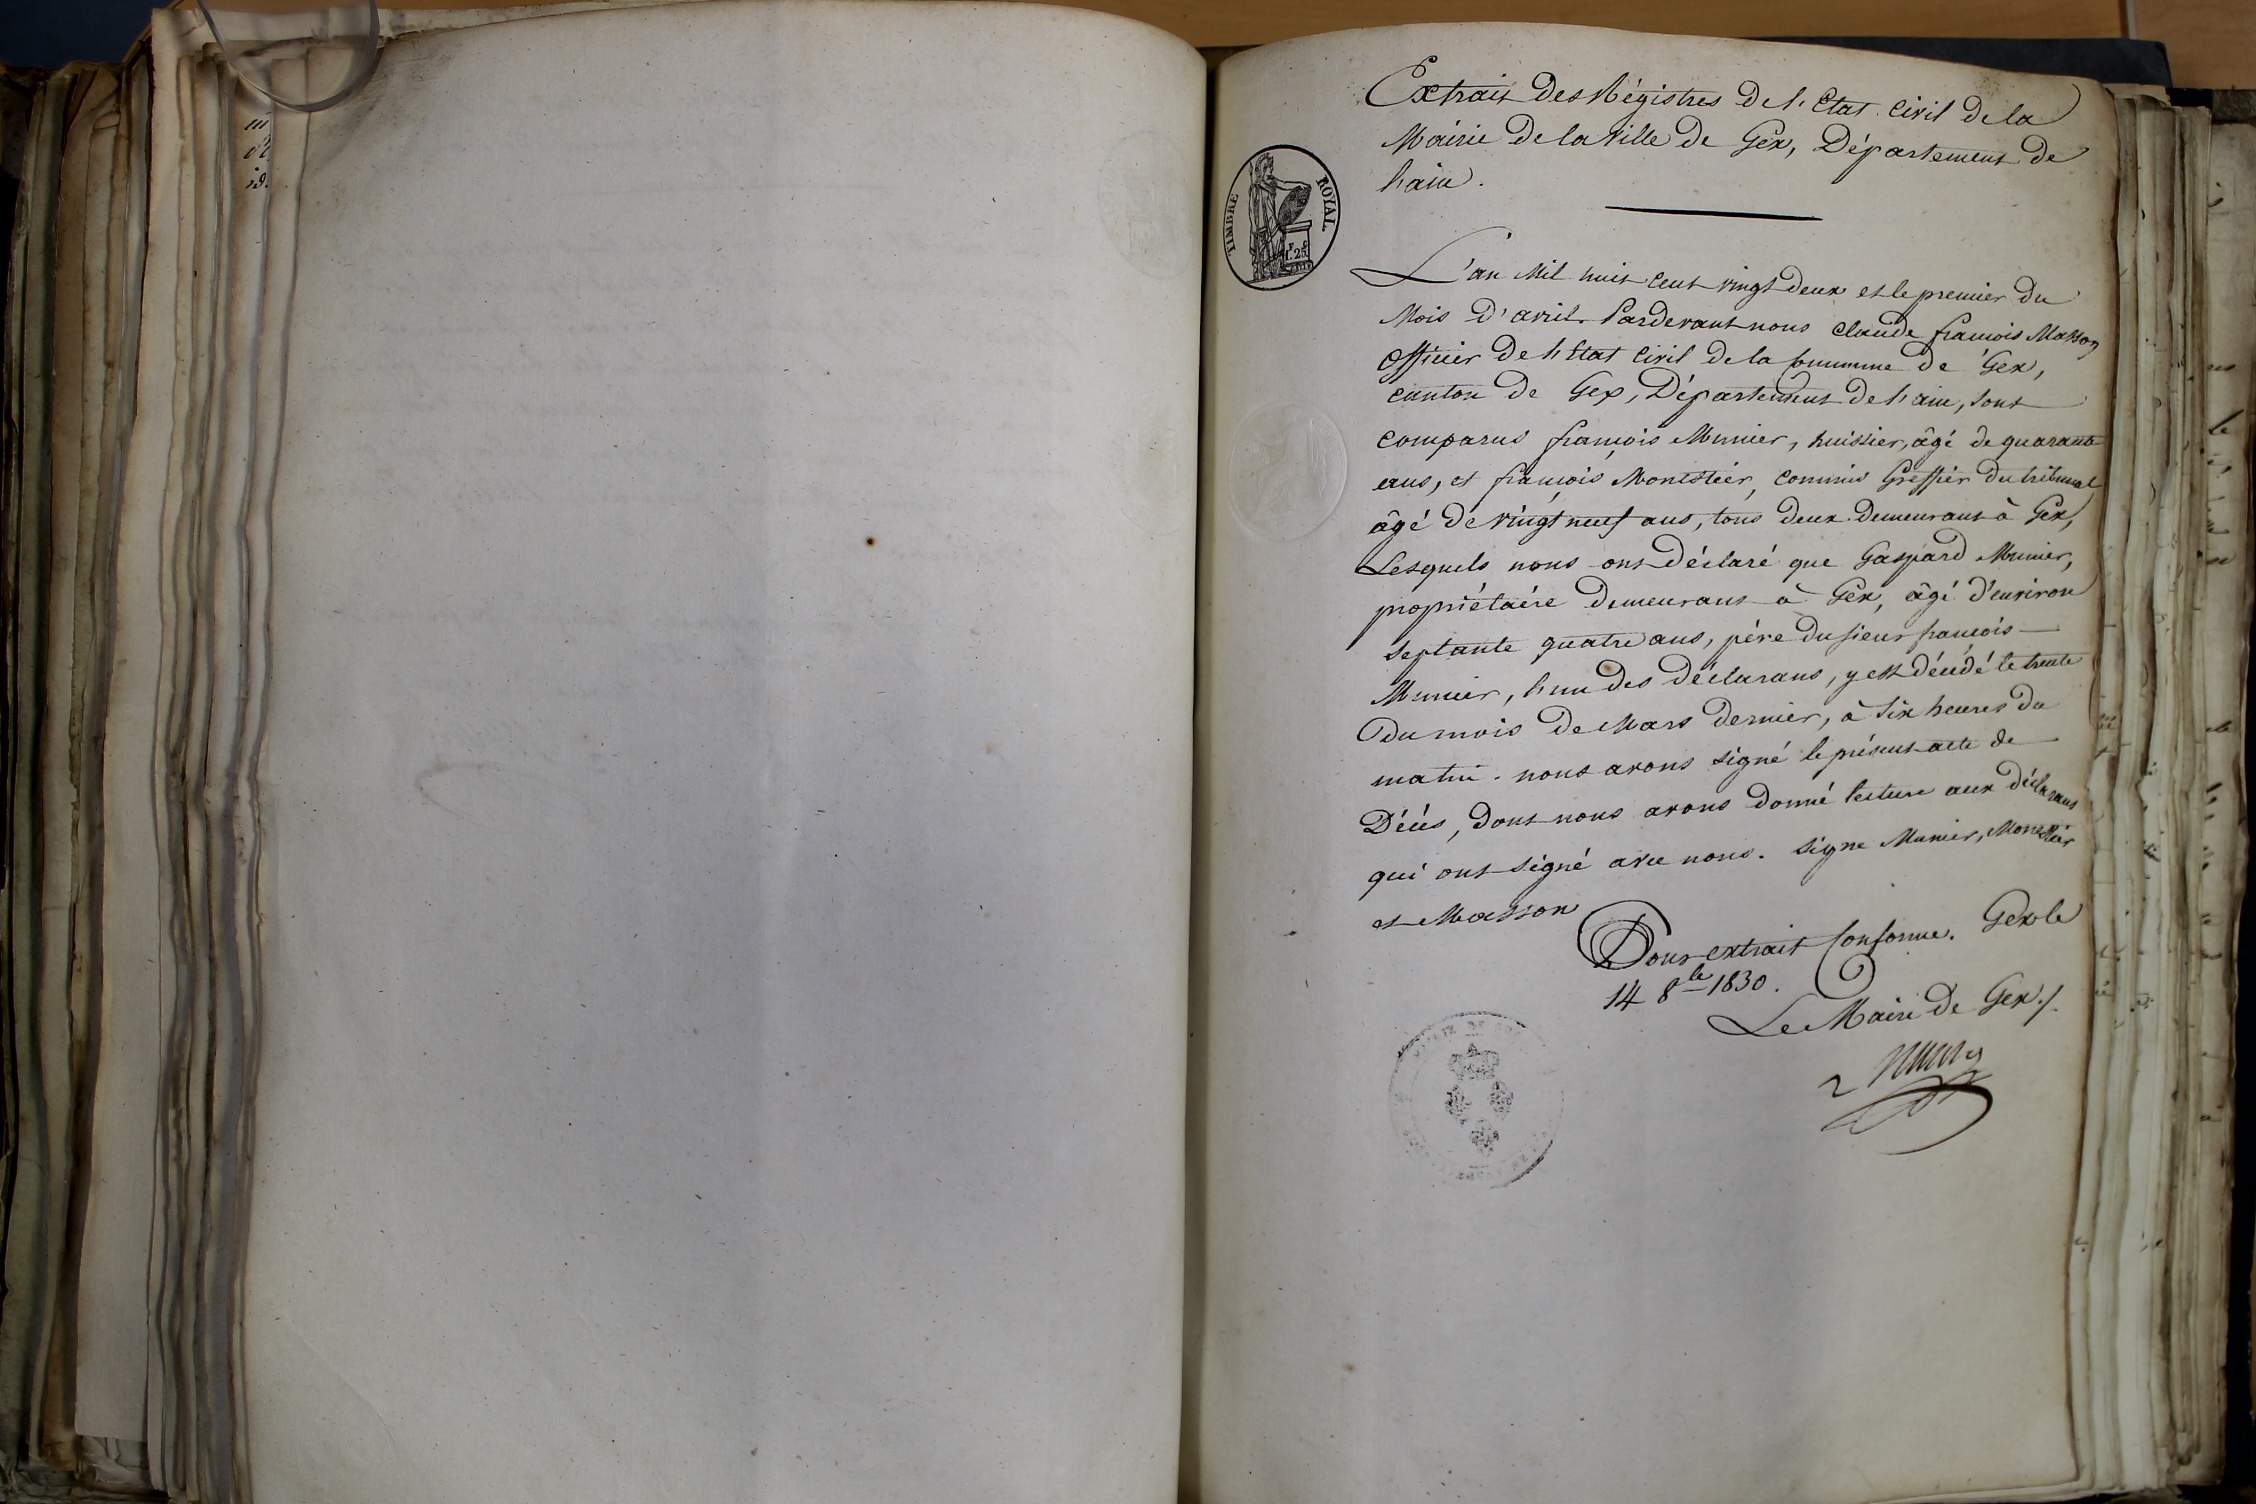 Extrait Des Régistres De l'Etat Civil de la
Mairie De la Ville De Gex, Département De
l'ain.
TIMBRE ROYAL
1. 25
L'an Mil huit Cent vingt Deux et le premier Du
Mois D'avril. Pardevant nous Claude françois Masson
Officier De l'Etat Civil De la Commune De Gex,
Canton De Gex, Département De l'ain, sont
comparus françois Munier, huissier, âgé de quarante
ans, et françois Monestier, Commis Greffier Du tribunal
âgé De vingt neuf ans, tous deux Demeurant à Gex,
Lesquels nous ont Déclaré que Gaspard Munier,
propriétaire Demeurant à Gex, âgé D'environ
septante quatre ans, père Du sieur françois
Munier, l'un Des Déclarans, y est Décédé le trente
Du mois De Mars Dernier, à six heures Du
matin. nous avons signé le présent acte De
Décès, Dont nous avons Donné lecture aux Déclarans
qui ont signé avec nous. signé Munier, Monestier
et Masson
Pour extrait Conforme. Gex le
14 8bre 1830.
Le Maire De Gex./.